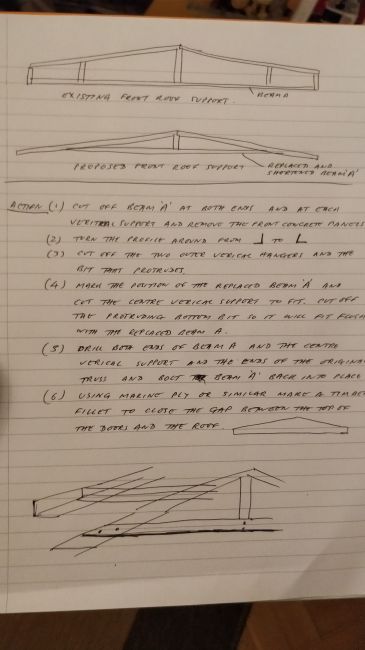 EXISTING FRONT ROOF SUPPORT.
BEAM A
PROPOSED FRONT ROOF SUPPORT
REPLACED AND
SHORTENED BEAM 'A'
ACTION (1) CUT OFF BEAM 'A' AT BOTH ENDS AND AT EACH
VERITCAL SUPPORT AND REMOVE THE FRONT CONCRETE PANELS
(2) TURN THE PROFILE AROUND FROM ┘ TO L
(3) CUT OFF THE TWO OUTER VERICAL HANGERS AND THE
BIT THAT PROTRUDES.
(4) MARK THE POSITION OF THE REPLACED BEAM 'A' AND
CUT THE CENTRE VERICAL SUPPORT TO FIT. CUT OFF
THE PROTRUDING BOTTOM BIT SO IT WILL FIT FLUSH
WITH THE REPLACED BEAM A.
(5) DRILL BOTH ENDS OF BEAM A AND THE CENTRE
VERICAL SUPPORT AND THE ENDS OF THE ORIGINA
TRUSS AND BOLT BEAM 'A' BACK INTO PLACE
(6) USING MARINE PLY OR SIMILAR MAKE A TIMBE
FILLET TO CLOSE THE GAP BETWEEN THE TOP OF
THE DOORS AND THE ROOF.